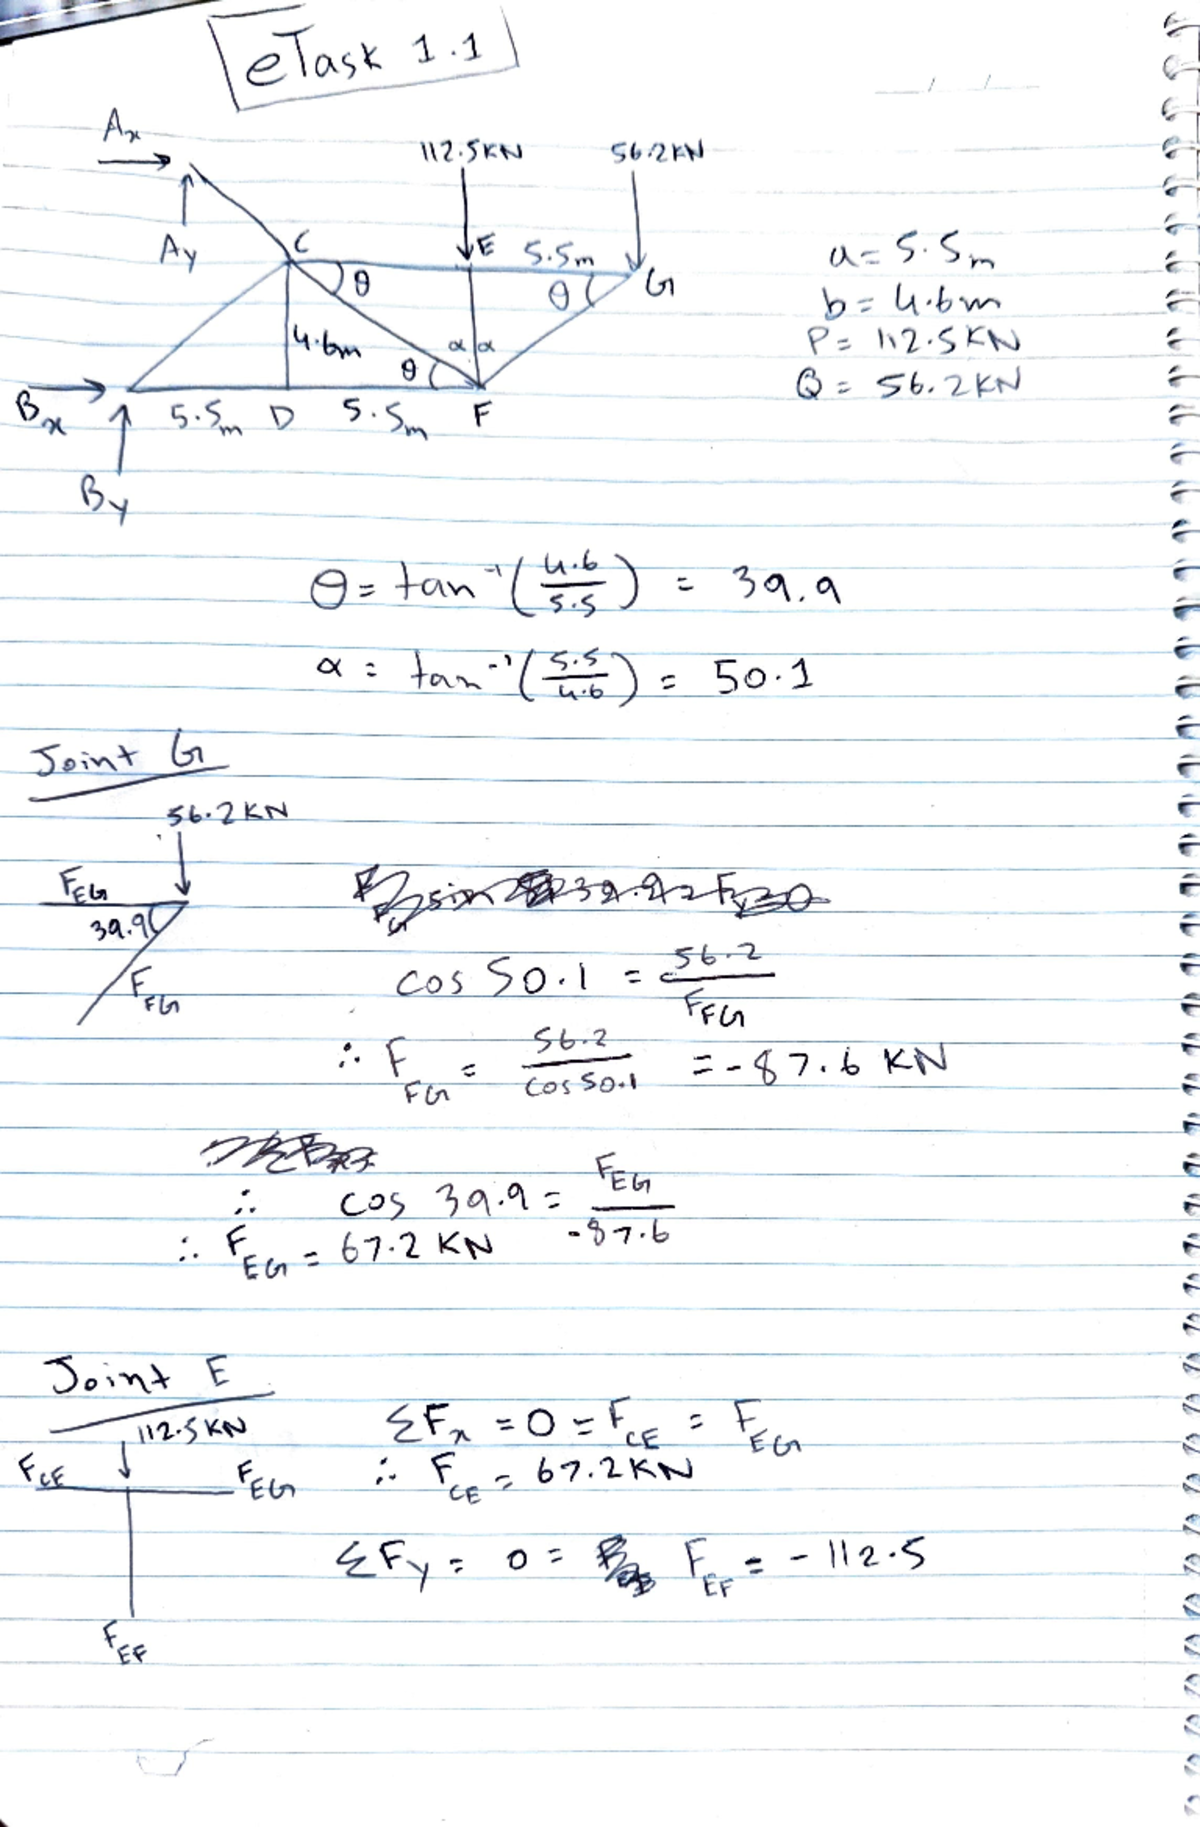 eTask 1.1
Ax
112.5KN 56.2KN
Ay C E 5.5m G
θ θ
4.6m α α
θ
Bx 5.5m D 5.5m F
By
a = 5.5m
b = 4.6m
P = 112.5KN
Q = 56.2KN
θ = tan⁻¹(4.6/5.5) = 39.9
α = tan⁻¹(5.5/4.6) = 50.1
Joint G
56.2KN
F_EG
39.9
F_FG
cos 50.1 = 56.2/F_FG
∴ F_FG = 56.2/cos 50.1 = -87.6 KN
∴ cos 39.9 = F_EG/-87.6
∴ F_EG = 67.2 KN
Joint E
112.5KN
F_CE F_EG
F_EF
ΣFx = 0 = F_CE = F_EG
∴ F_CE = 67.2KN
ΣFy = 0 = F_EF = -112.5